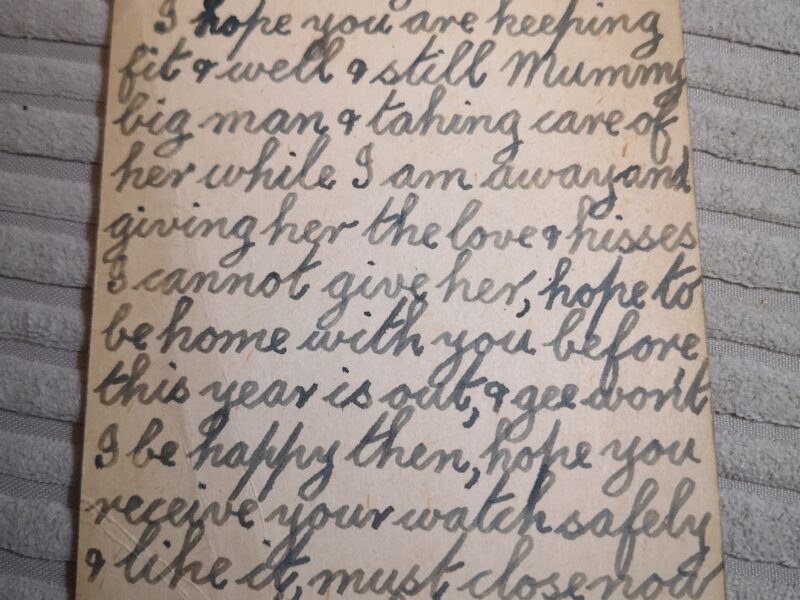 I hope you are keeping
fit & well & still Mummy
big man & taking care of
her while I am away and
giving her the love & kisses
I cannot give her, hope to
be home with you before
this year is out, & gee won't
I be happy then, hope you
receive your watch safely
& like it, must close now